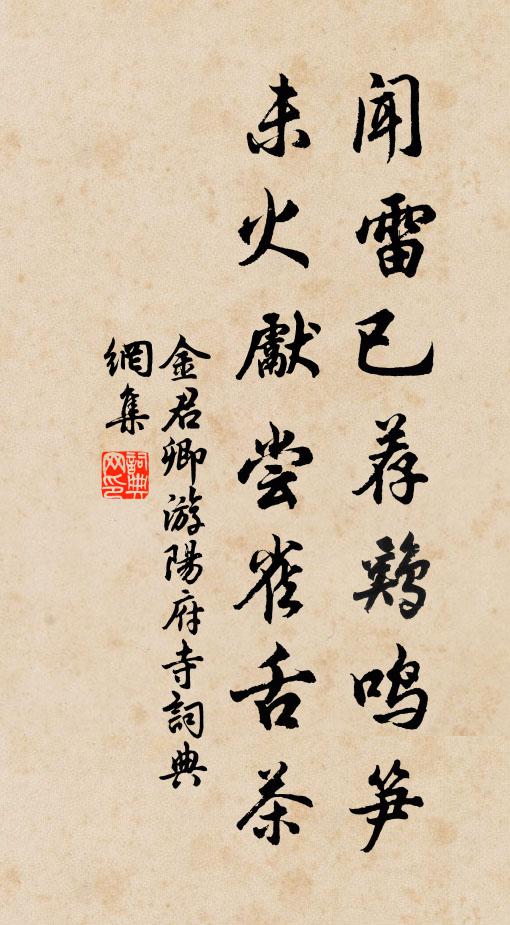 闻雷已荐鷄鸣笋
未火獻尝雀舌茶
金君卿游陽府寺詞典
網集
詞典网印